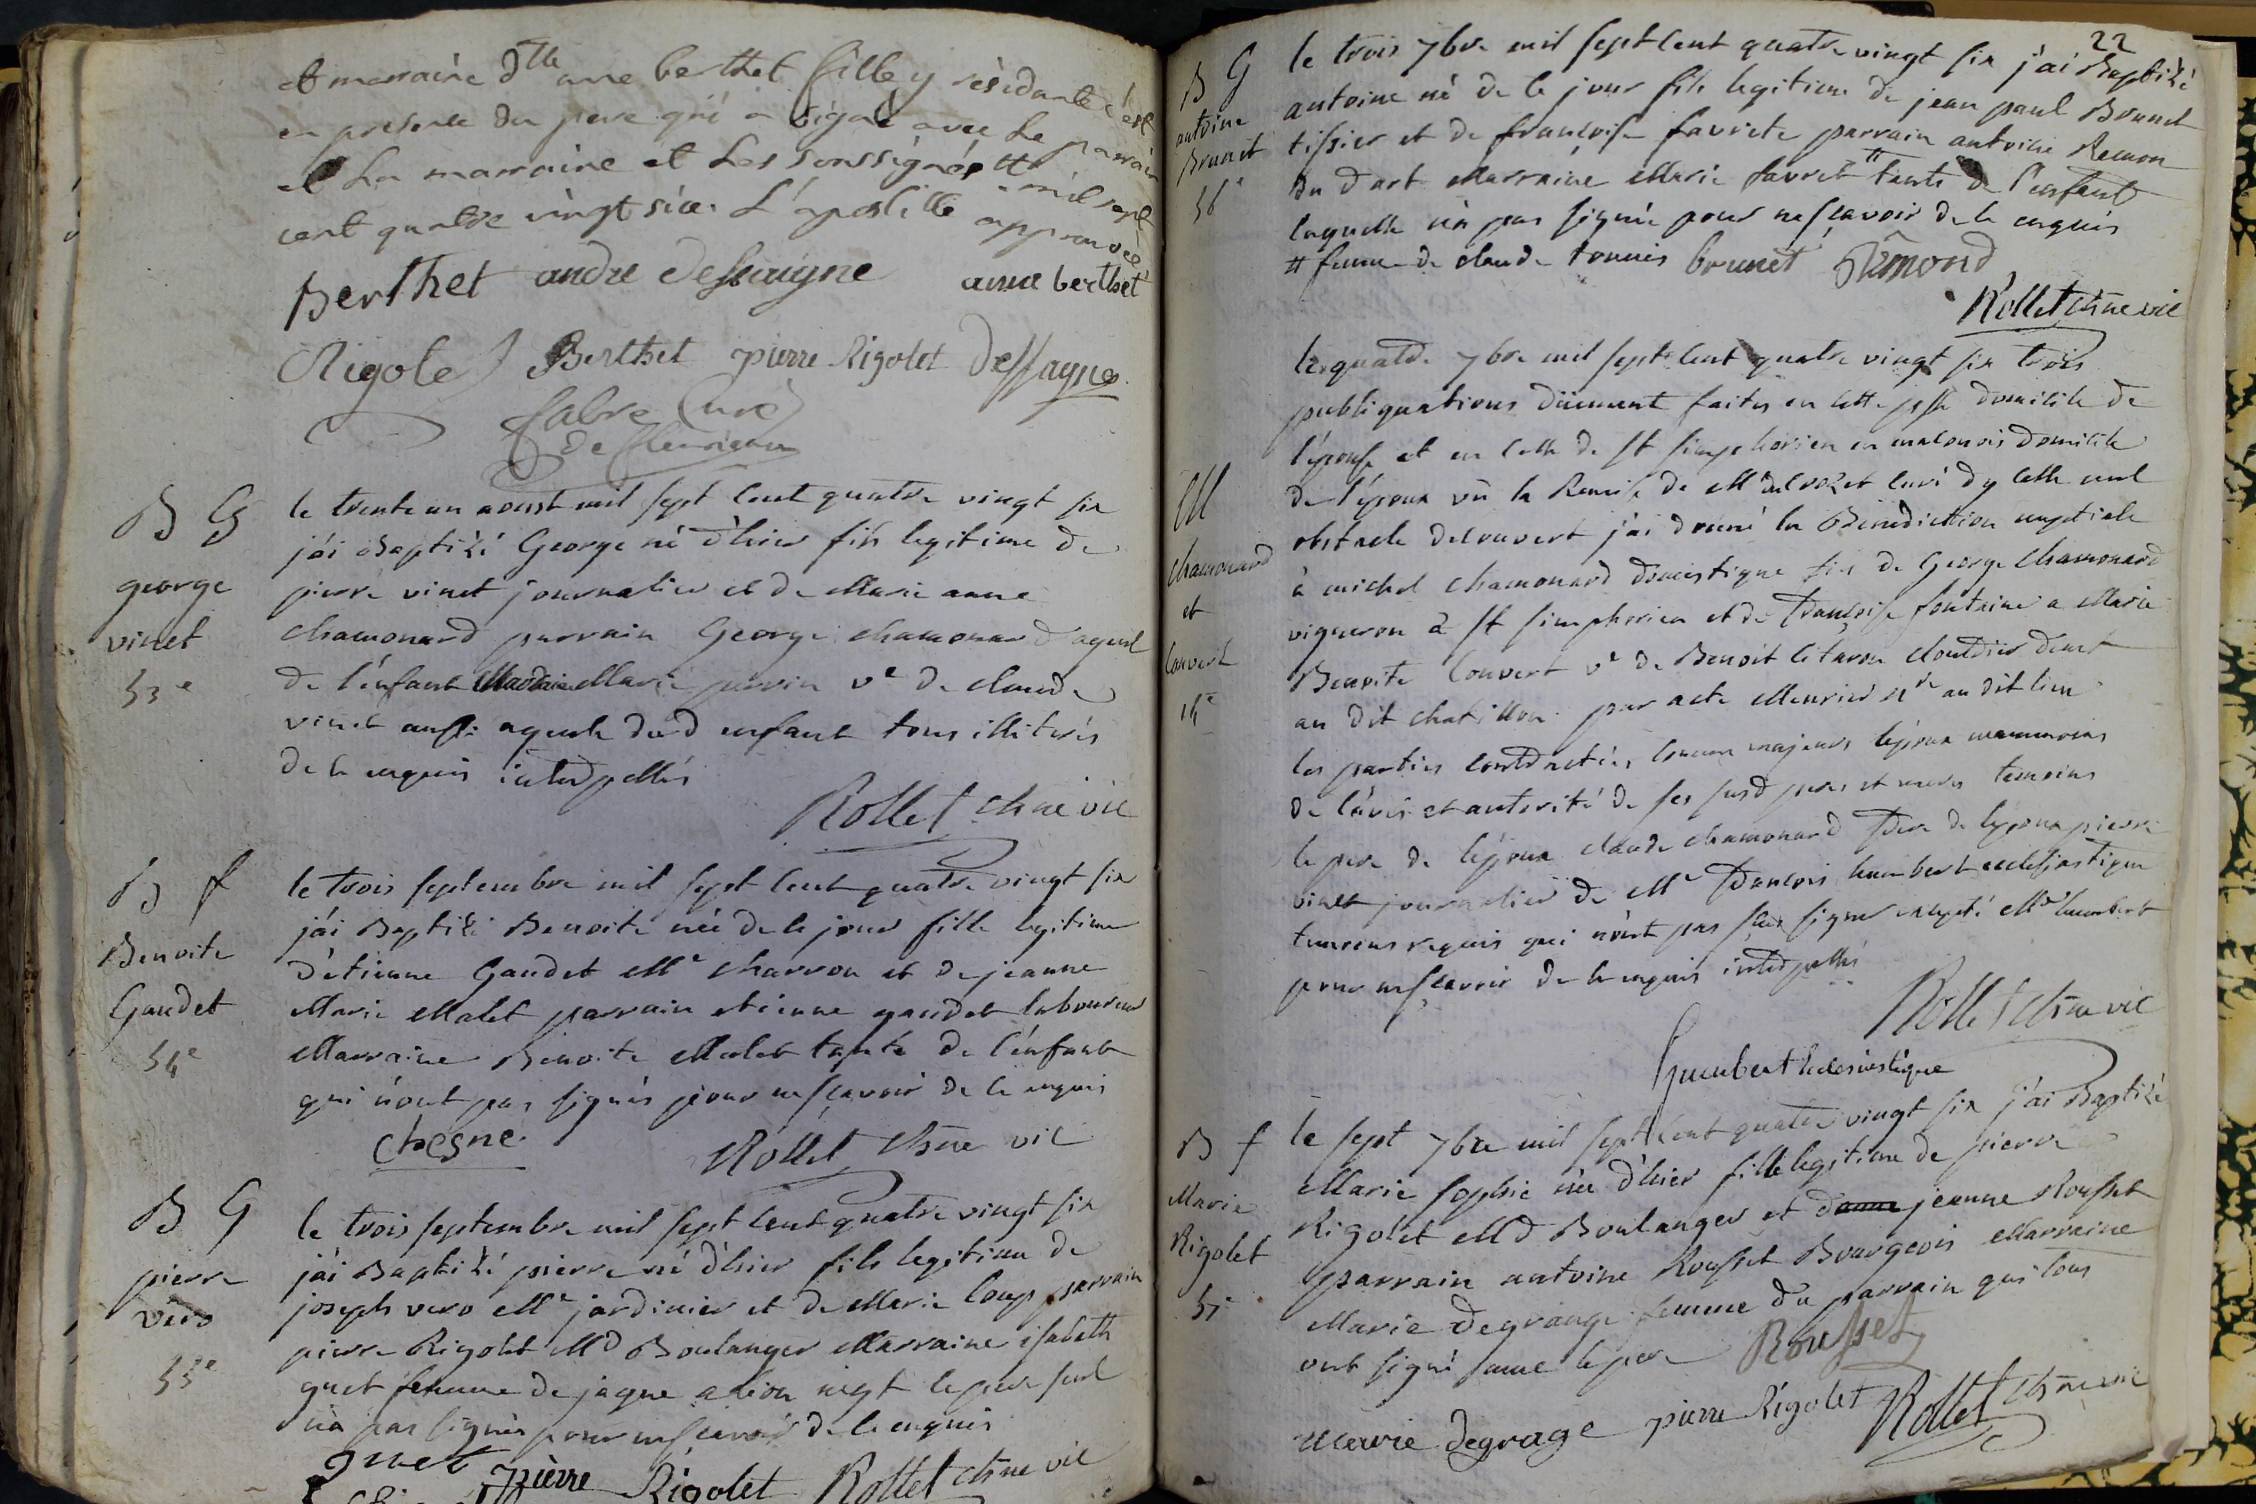 et marraine dlle anne berthet fille y résidante c'est
en présence du pere qui a signé avec le parrain
et La marraine et Les soussignés # mil sept
cent quatre vingt six. L'apostille approuvée
Berthet andré dessaigne anne berthet
Rigolet Berthet pierre Rigolet Dessaigne
fabre curé
de fleurieux
B G
george
vinet
53e
le trente un aoust mil sept cent quatre vingt six
j'ai Baptizé George né d'hier fils legitime de
pierre vinet journalier et de Marie anne
chamonard parrain George chamonard ayeul
de l'enfant Marie perrin ve de claude
vinet aussi ayeule dud enfant tous illiterés
de ce enquis interpellés
Rollet chne vic
B f
Benoite
Gaudet
54e
le trois septembre mil sept cent quatre vingt six
j'ai Baptizé Benoite née de ce jour fille legitime
d'étienne Gaudet Me charron et de jeanne
Marie Malet parrain etienne gaudet laboureur
Marraine Benoite Malet tante de l'enfant
qui n'ont pas signés pour ne sçavoir de ce enquis
Chesne Rollet chne vic
B G
pierre
vero
55e
le trois septembre mil sept cent quatre vingt six
j'ai Baptizé pierre né d'hier fils legitime de
joseph vero Me jardinier et de Marie Loup parrain
pierre Rigolet Md Boulanger Marraine isabeth
guet femme de jaque le pere seul
n'a pas signés pour ne sçavoir de ce enquis
guet pierre Rigolet Rollet chne vic
22
B G
antoine
Brunet
56e
le trois 7bre mil sept cent quatre vingt six j'ai Baptizé
antoine né de ce jour fils legitime de jean paul Brunet
tissier et de françoise favrete parrain antoine Remon
Marraine Marie favret # tante de l'enfant
laquelle n'a pas signée pour ne sçavoir de ce enquis
# femme de claude brunet Rémond
Rollet chne vic
M
chamonard
et
Couvert
14e
le quatre 7bre mil sept cent quatre vingt six trois
publiquations düement faites en cette psse domicile de
l'épouse et en celle de St simphorien en maconois domicile
de l'époux vû la Remise de Mr curé d'ycelle nul
obstacle decouvert j'ai donné la Benediction nuptiale
à michel chamonard domestique fils de George chamonard
vigneron à St simphorien et de françoise fontaine a Marie
Benoite Couvert ve de Benoit demt
au dit chatillon par acte Meunier nre au dit lieu
les parties contractées comme majeurs l'époux neanmoins
de l'avis et autorité de ses susd peres et meres temoins
le pere de l'époux claude chamonard frere de l'epoux pierre
vinet journalier de Mr françois humbert ecclesiastique
temoins requis qui n'ont pas sçu signer excepté Mr humbert
pour ne sçavoir de ce enquis interpellés
Rollet chne vic
humbert Ecclesiastique
B f
Marie
Rigolet
57e
le sept 7bre mil sept cent quatre vingt six j'ai Baptizé
Marie sophie née d'hier fille legitime de pierre
Rigolet Md Boulanger et danne jeanne Rousset
parrain antoine Rousset Bourgeois Marraine
Marie Degrange femme du parrain qui tous
ont signé le pere Rousset
marie degrage pierre Rigolet Rollet chne vic